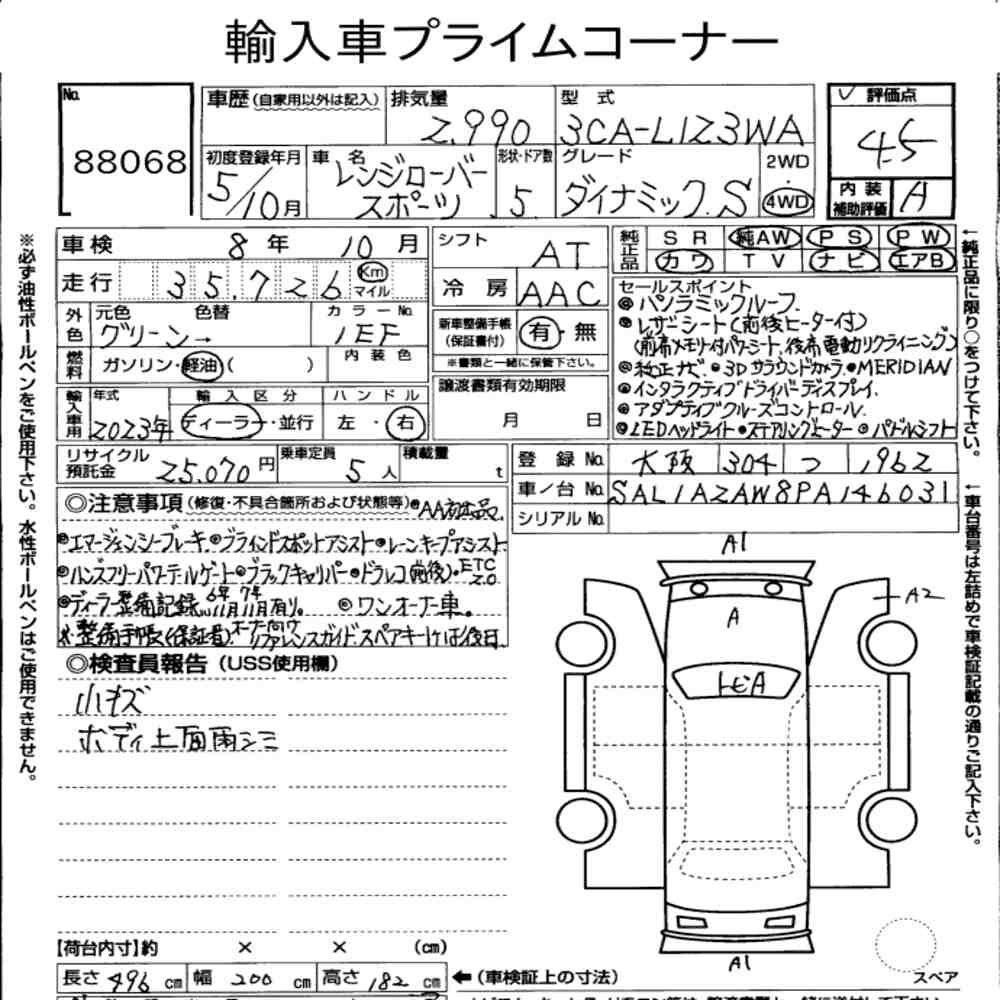 輸入車プライムコーナー
No. 88068
車歴(自家用以外は記入)
排気量 2,990
型式 3CA-L1Z3WA
✓ 評価点 4.5
内装補助評価 A
初度登録年月 5/10月
車名 レンジローバースポーツ
形状・ドア数 5
グレード ダイナミック.S
2WD・4WD
車検 8年 10月
走行 35,726 Km マイル
外色 元色 グリーン→ 色替
カラーNo. 1EF
燃料 ガソリン・軽油( )
内装色
輸入車用 年式 2023年
輸入区分 ディーラー・並行
ハンドル 左・右
シフト AT
冷房 AAC
新車整備手帳(保証書付) 有・無
※書類と一緒に保管下さい。
譲渡書類有効期限
月 日
純正品 SR 純AW PS PW
カワ TV ナビ エアB
セールスポイント
◎パノラミックルーフ.
◎レザーシート(前後ヒーター付)
(前席メモリ付パワーシート,後席電動リクライニング)
◎純正ナビ.●3Dサラウンドカメラ.●MERIDIAN
◎インタラクティブドライバーディスプレイ.
◎アダプティブクルーズコントロール.
◎LEDヘッドライト●ステアリングヒーター◎パドルシフト
リサイクル預託金 25,070円
乗車定員 5人
積載量 t
登録No. 大阪 304 つ 1962
車台No. SAL1AZAW8PA146031
シリアルNo.
◎注意事項(修復・不具合箇所および状態等)
◎エマージェンシーブレーキ.◎ブラインドスポットアシスト●レーンキープアシスト.
◎ハンズフリーパワーテールゲート◎ブラックキャリパー●ドラレコ(前後)・ETC2.0
◎ディーラー整備記録 6年11月 7年11月有り. ◎ワンオーナー車.
※整備手帳(保証書).オーナー向けリファレンスガイドスペアキーは後日.
◎検査員報告(USS使用欄)
小キズ
ボディ上面雨シミ
A1
A
A2
トビA
A1
スペア
【荷台内寸】約 × × (cm)
長さ 496 cm 幅 200 cm 高さ 182 cm ←(車検証上の寸法)
※必ず油性ボールペンをご使用下さい。水性ボールペンはご使用できません。
←純正品に限り○をつけて下さい。
←車台番号は左詰めで車検証記載の通りご記入下さい。